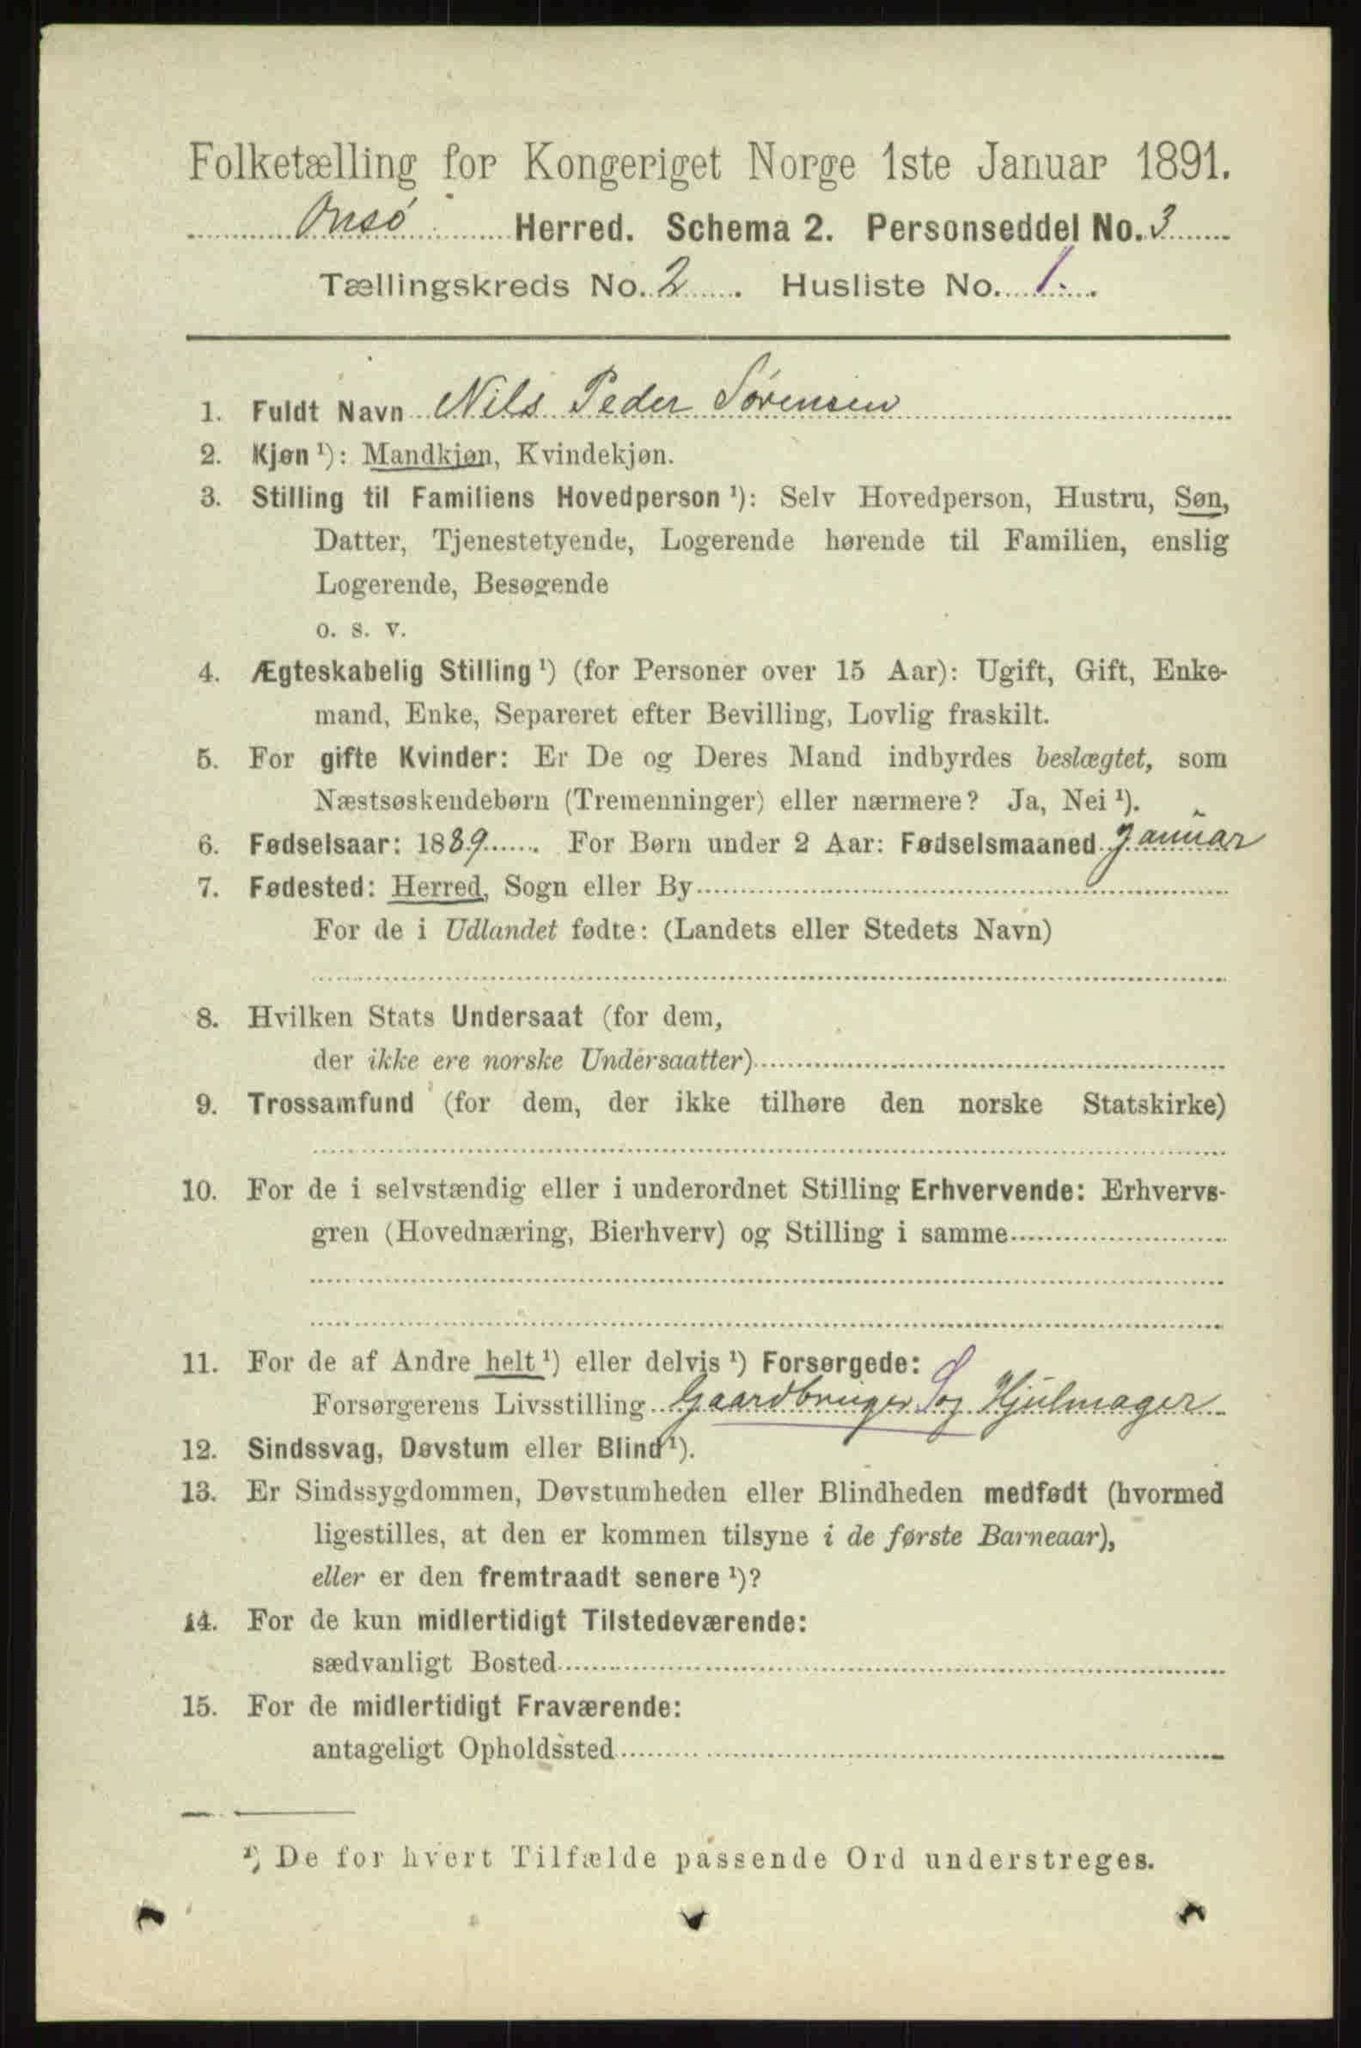 Folketælling for Kongeriget Norge 1ste Januar 1891.
Onsø Herred. Schema 2. Personseddel No. 3
Tællingskreds No. 2. Husliste No. 1.
1. Fuldt Navn Nils Peder Sørensen
2. Kjøn ¹): Mandkjøn, Kvindekjøn.
3. Stilling til Familiens Hovedperson ¹): Selv Hovedperson, Hustru, Søn,
Datter, Tjenestetyende, Logerende hørende til Familien, enslig
Logerende, Besøgende
o. s. v.
4. Ægteskabelig Stilling ¹) (for Personer over 15 Aar): Ugift, Gift, Enke-
mand, Enke, Separeret efter Bevilling, Lovlig fraskilt.
5. For gifte Kvinder: Er De og Deres Mand indbyrdes beslægtet, som
Næstsøskendebørn (Tremenninger) eller nærmere? Ja, Nei ¹).
6. Fødselsaar: 1889. For Børn under 2 Aar: Fødselsmaaned Januar
7. Fødested: Herred, Sogn eller By
For de i Udlandet fødte: (Landets eller Stedets Navn)
8. Hvilken Stats Undersaat (for dem,
der ikke ere norske Undersaatter)
9. Trossamfund (for dem, der ikke tilhøre den norske Statskirke)
10. For de i selvstændig eller i underordnet Stilling Erhvervende: Erhvervs-
gren (Hovednæring, Bierhverv) og Stilling i samme
11. For de af Andre helt ¹) eller delvis ¹) Forsørgede:
Forsørgerens Livsstilling Gaardbruger S og Hjulmager
12. Sindssvag, Døvstum eller Blind ¹).
13. Er Sindssygdommen, Døvstumheden eller Blindheden medfødt (hvormed
ligestilles, at den er kommen tilsyne i de første Barneaar),
eller er den fremtraadt senere ¹)?
14. For de kun midlertidigt Tilstedeværende:
sædvanligt Bosted
15. For de midlertidigt Fraværende:
antageligt Opholdssted
¹) De for hvert Tilfælde passende Ord understreges.